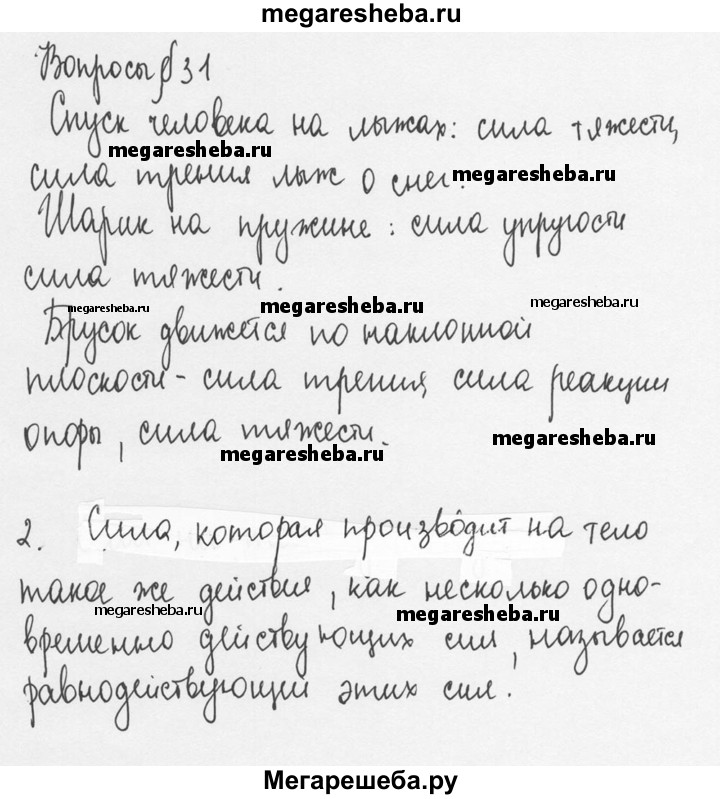 megaresheba.ru
Вопросы § 31
Спуск человека на лыжах: сила тяжести,
megaresheba.ru
сила трения лыж о снег.
megaresheba.ru
Шарик на пружине: сила упругости
сила тяжести.
megaresheba.ru
megaresheba.ru
megaresheba.ru
Брусок движется по наклонной
плоскости - сила трения, сила реакции
опоры, сила тяжести.
megaresheba.ru
megaresheba.ru
2. Сила, которая производит на тело
такое же действия, как несколько одно-
megaresheba.ru
megaresheba.ru
временно действующих сил, называется
равнодействующей этих сил.
Мегарешеба.ру